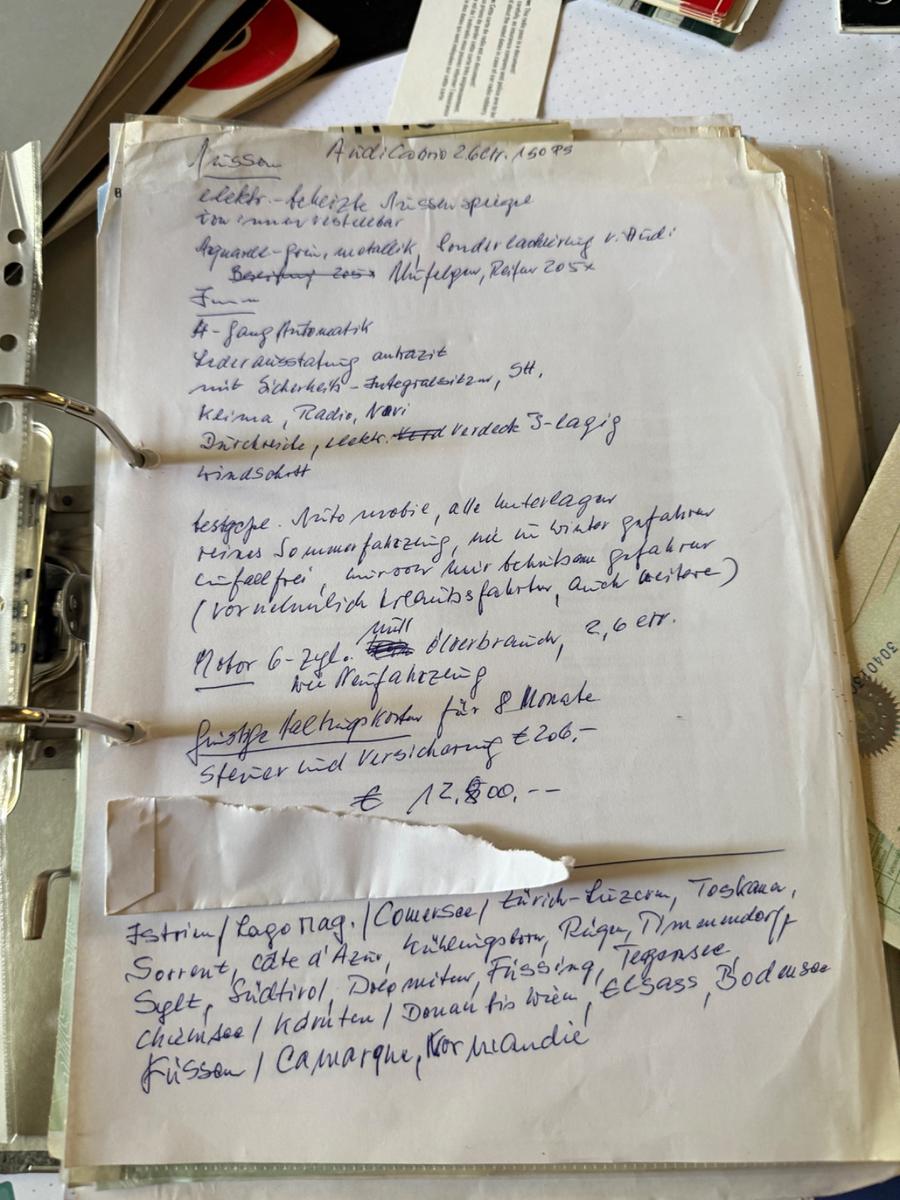 Aussen Audi Cabrio 2.6 Ltr. 150 PS
elektr.-beheizte Aussenspiegel
von innen verstellbar
Aquarell-grün, metallik, Sonderlackierung v. Audi
Bereifung 205x Alufelgen, Reifen 205x
Innen
4-Gang Automatik
Lederausstattung antrazit
mit Sicherheits-Integralsitzen, SH.
Klima, Radio, Navi
Durchreiche, elektr. Verd Verdeck 3-lagig
Windschott
bestgepfl. Automobil, alle Unterlagen
reines Sommerfahrzeug, nie im Winter gefahren
unfallfrei, nur behutsam gefahren
(vornehmlich Urlaubsfahrten, auch weitere)
null
Motor 6-Zyl. Ölverbrauch, 2,6 Ltr.
wie Neufahrzeug
günstige Haltungskosten für 8 Monate
Steuer und Versicherung € 206,-
€ 12.800.--
Istrien/Lago Mag./Comersee/Zürich-Luzern, Toskana,
Sorrent, Côte d'Azur, Kühlungsborn, Rügen, Timmendorf
Sylt, Südtirol, Dolomiten, Füssing, Tegernsee
Chiemsee/Kärnten/Donau bis Wien, Elsass, Bodensee
Füssen/Camarque, Normandie